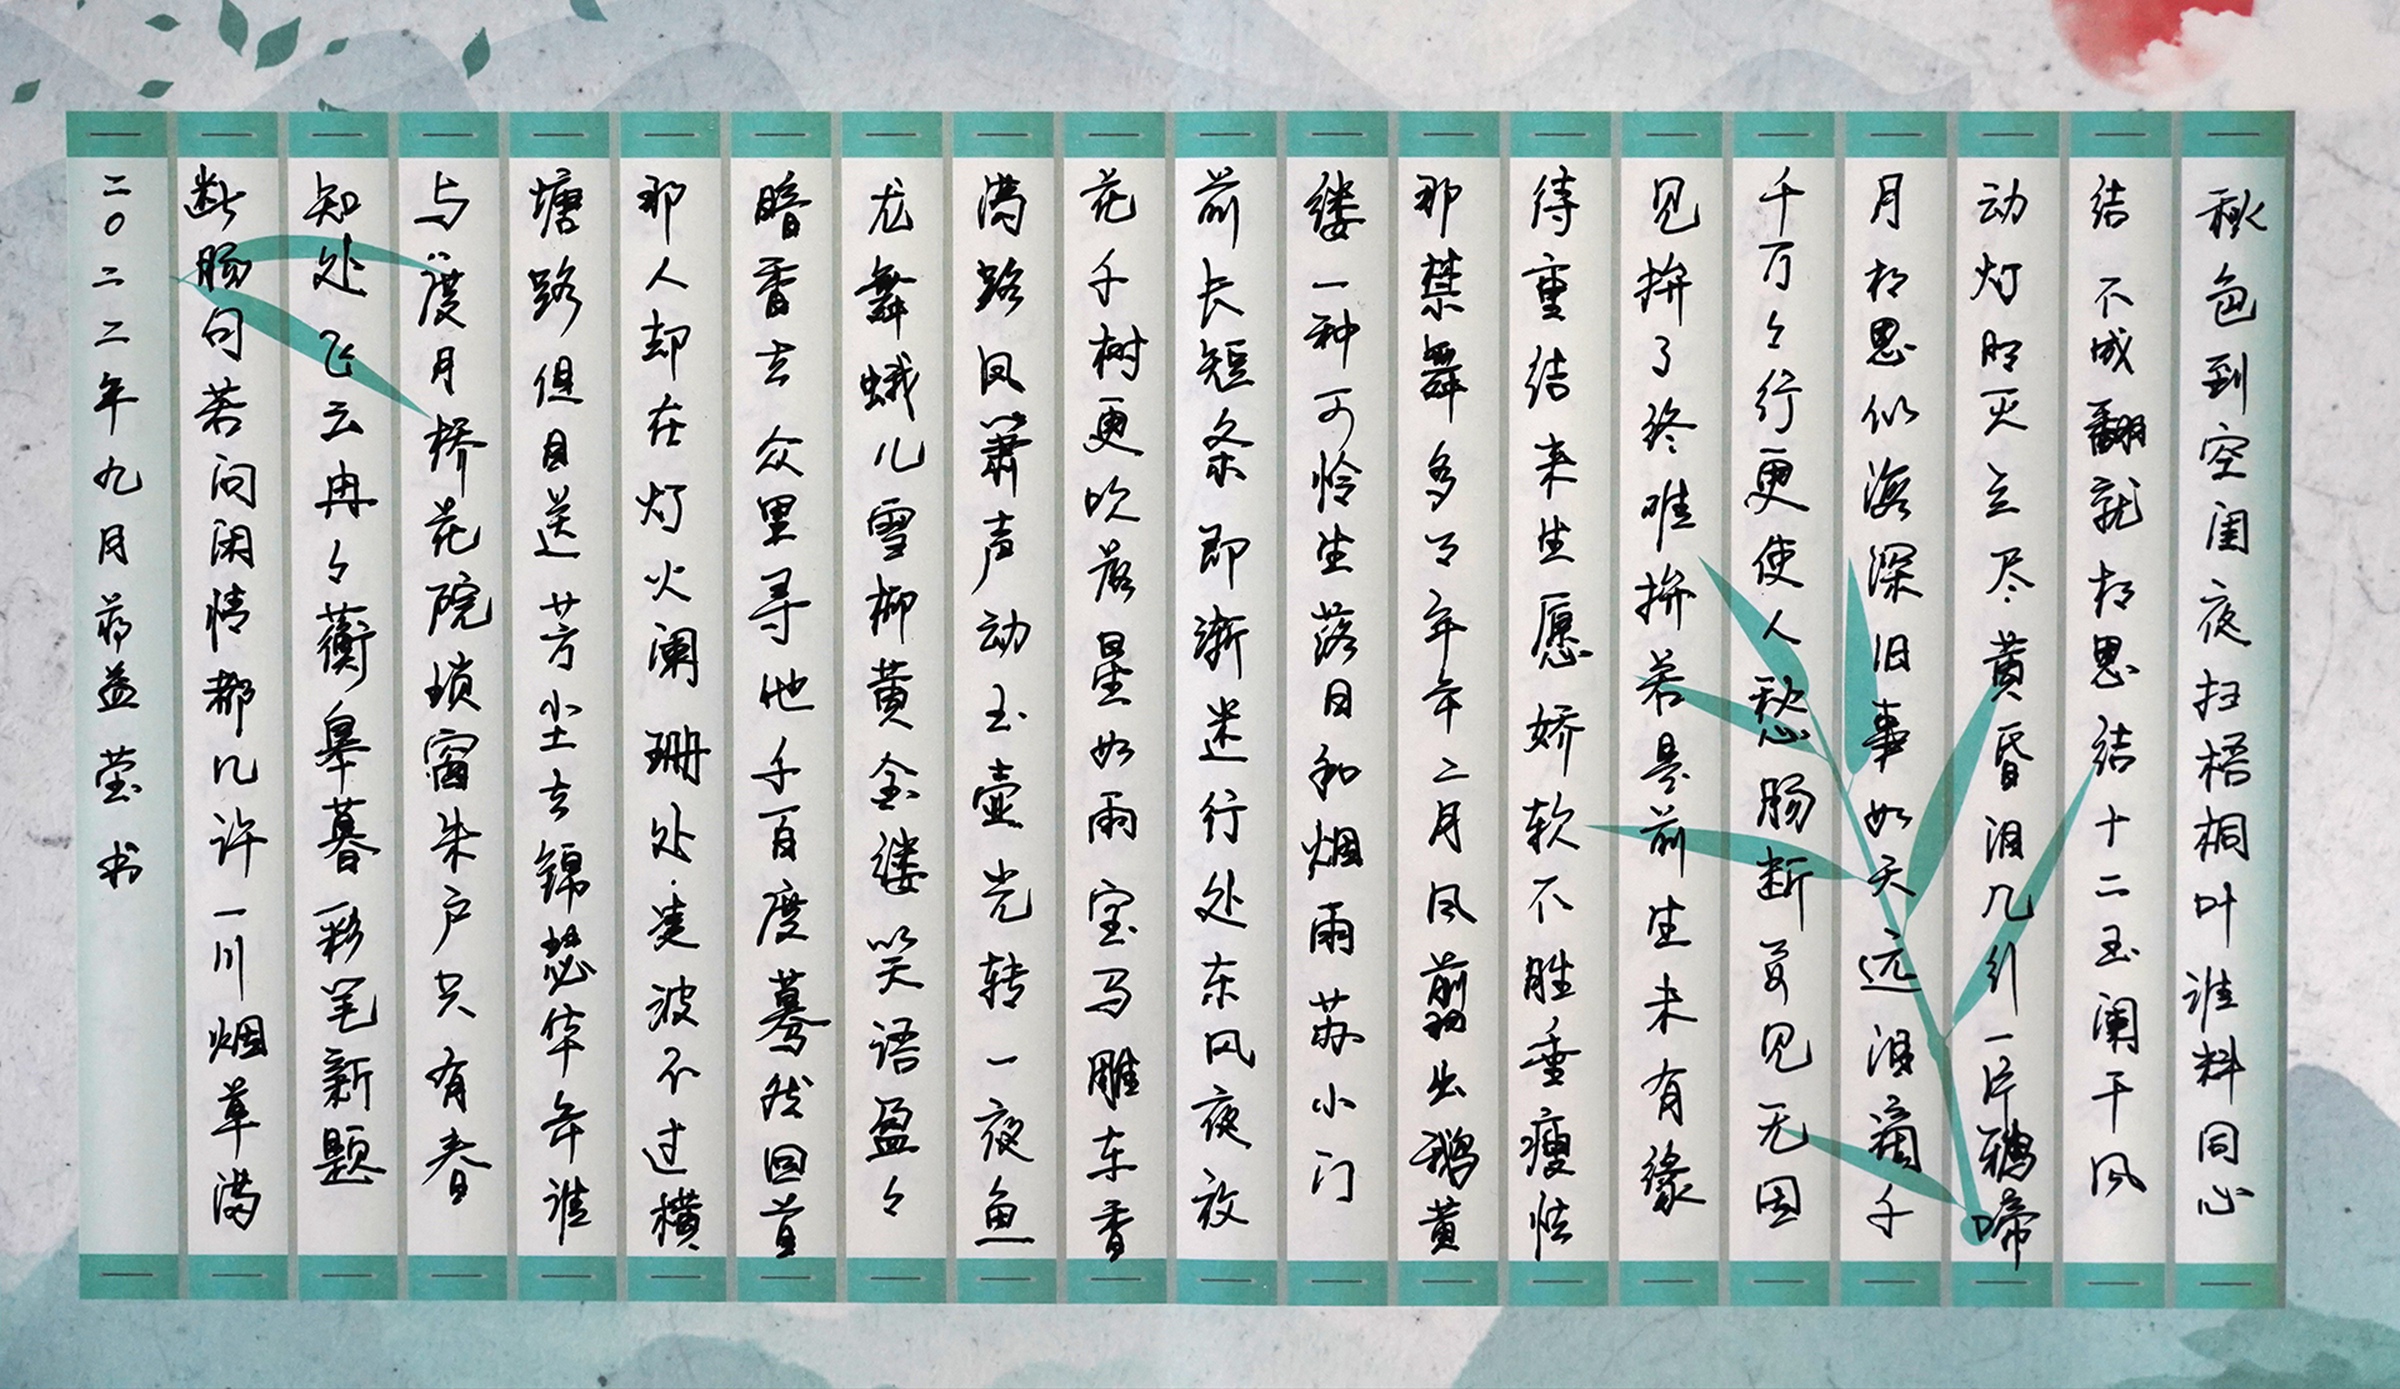 秋色到空闺夜扫梧桐叶谁料同心
结不成翻就相思结十二玉阑干风
动灯明灭立尽黄昏泪几行一片鸦啼
月相思似海深旧事如天远泪滴千
千万々行更使人愁肠断要见无因
见拚了终唯拚若是前生未有缘
待重结来生愿娇软不胜垂瘦怯
那禁舞多事年年二月风剪出鹅黄
缕一种可怜生落日和烟雨苏小门
前长短条即渐迷行处东风夜放
花千树更吹落星如雨宝马雕车香
满路凤箫声动玉壶光转一夜鱼
龙舞蛾儿雪柳黄金缕笑语盈々
暗香去众里寻他千百度蓦然回首
那人却在灯火阑珊处凌波不过横
塘路但目送芳尘去锦瑟华年谁
与度月桥花院琐窗朱户只有春
知处飞云冉々蘅皋暮彩笔新题
断肠句若问闲情都几许一川烟草满
二〇二二年九月蒋益莹书